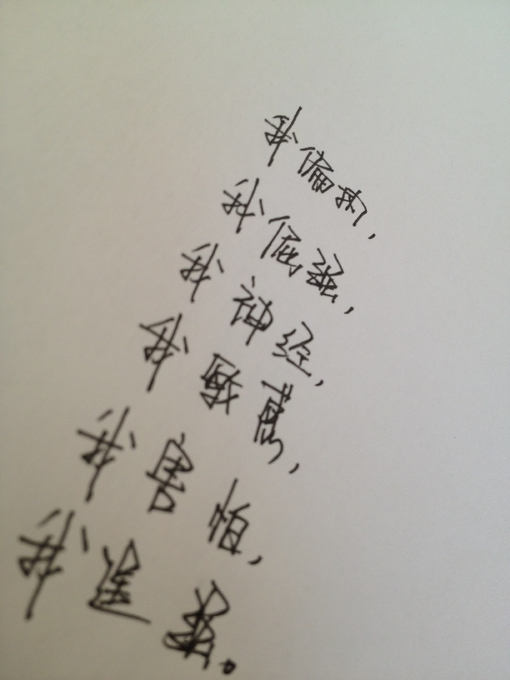 我偏执,
我倔强,
我神经,
我敏感,
我害怕,
我逞强。